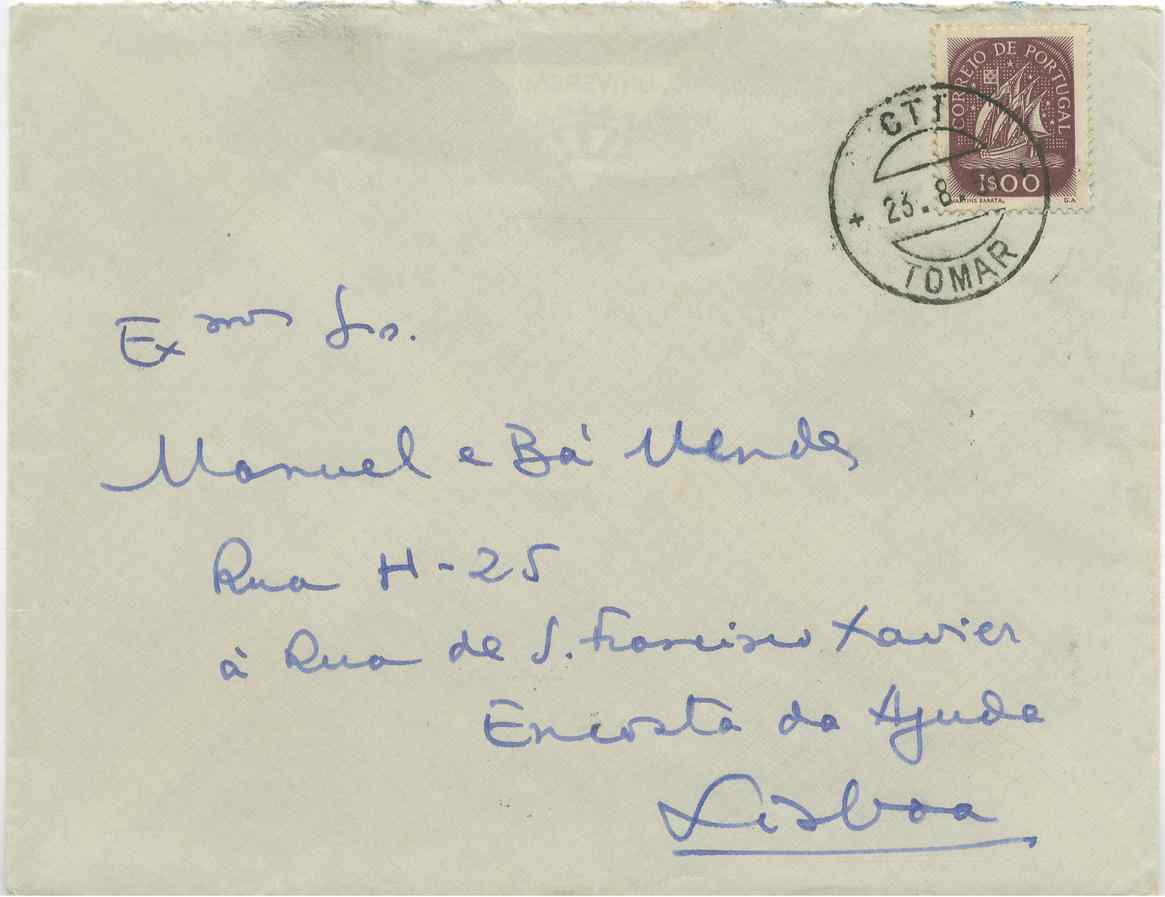 CORREIO DE PORTUGAL
1$00
MARTINS BARATA. G.A.
CTT
23.8.
TOMAR
Ex mos Srs.
Manuel e Bá Mendes
Rua H-25
à Rua de S. Francisco Xavier
Encosta da Ajuda
Lisboa